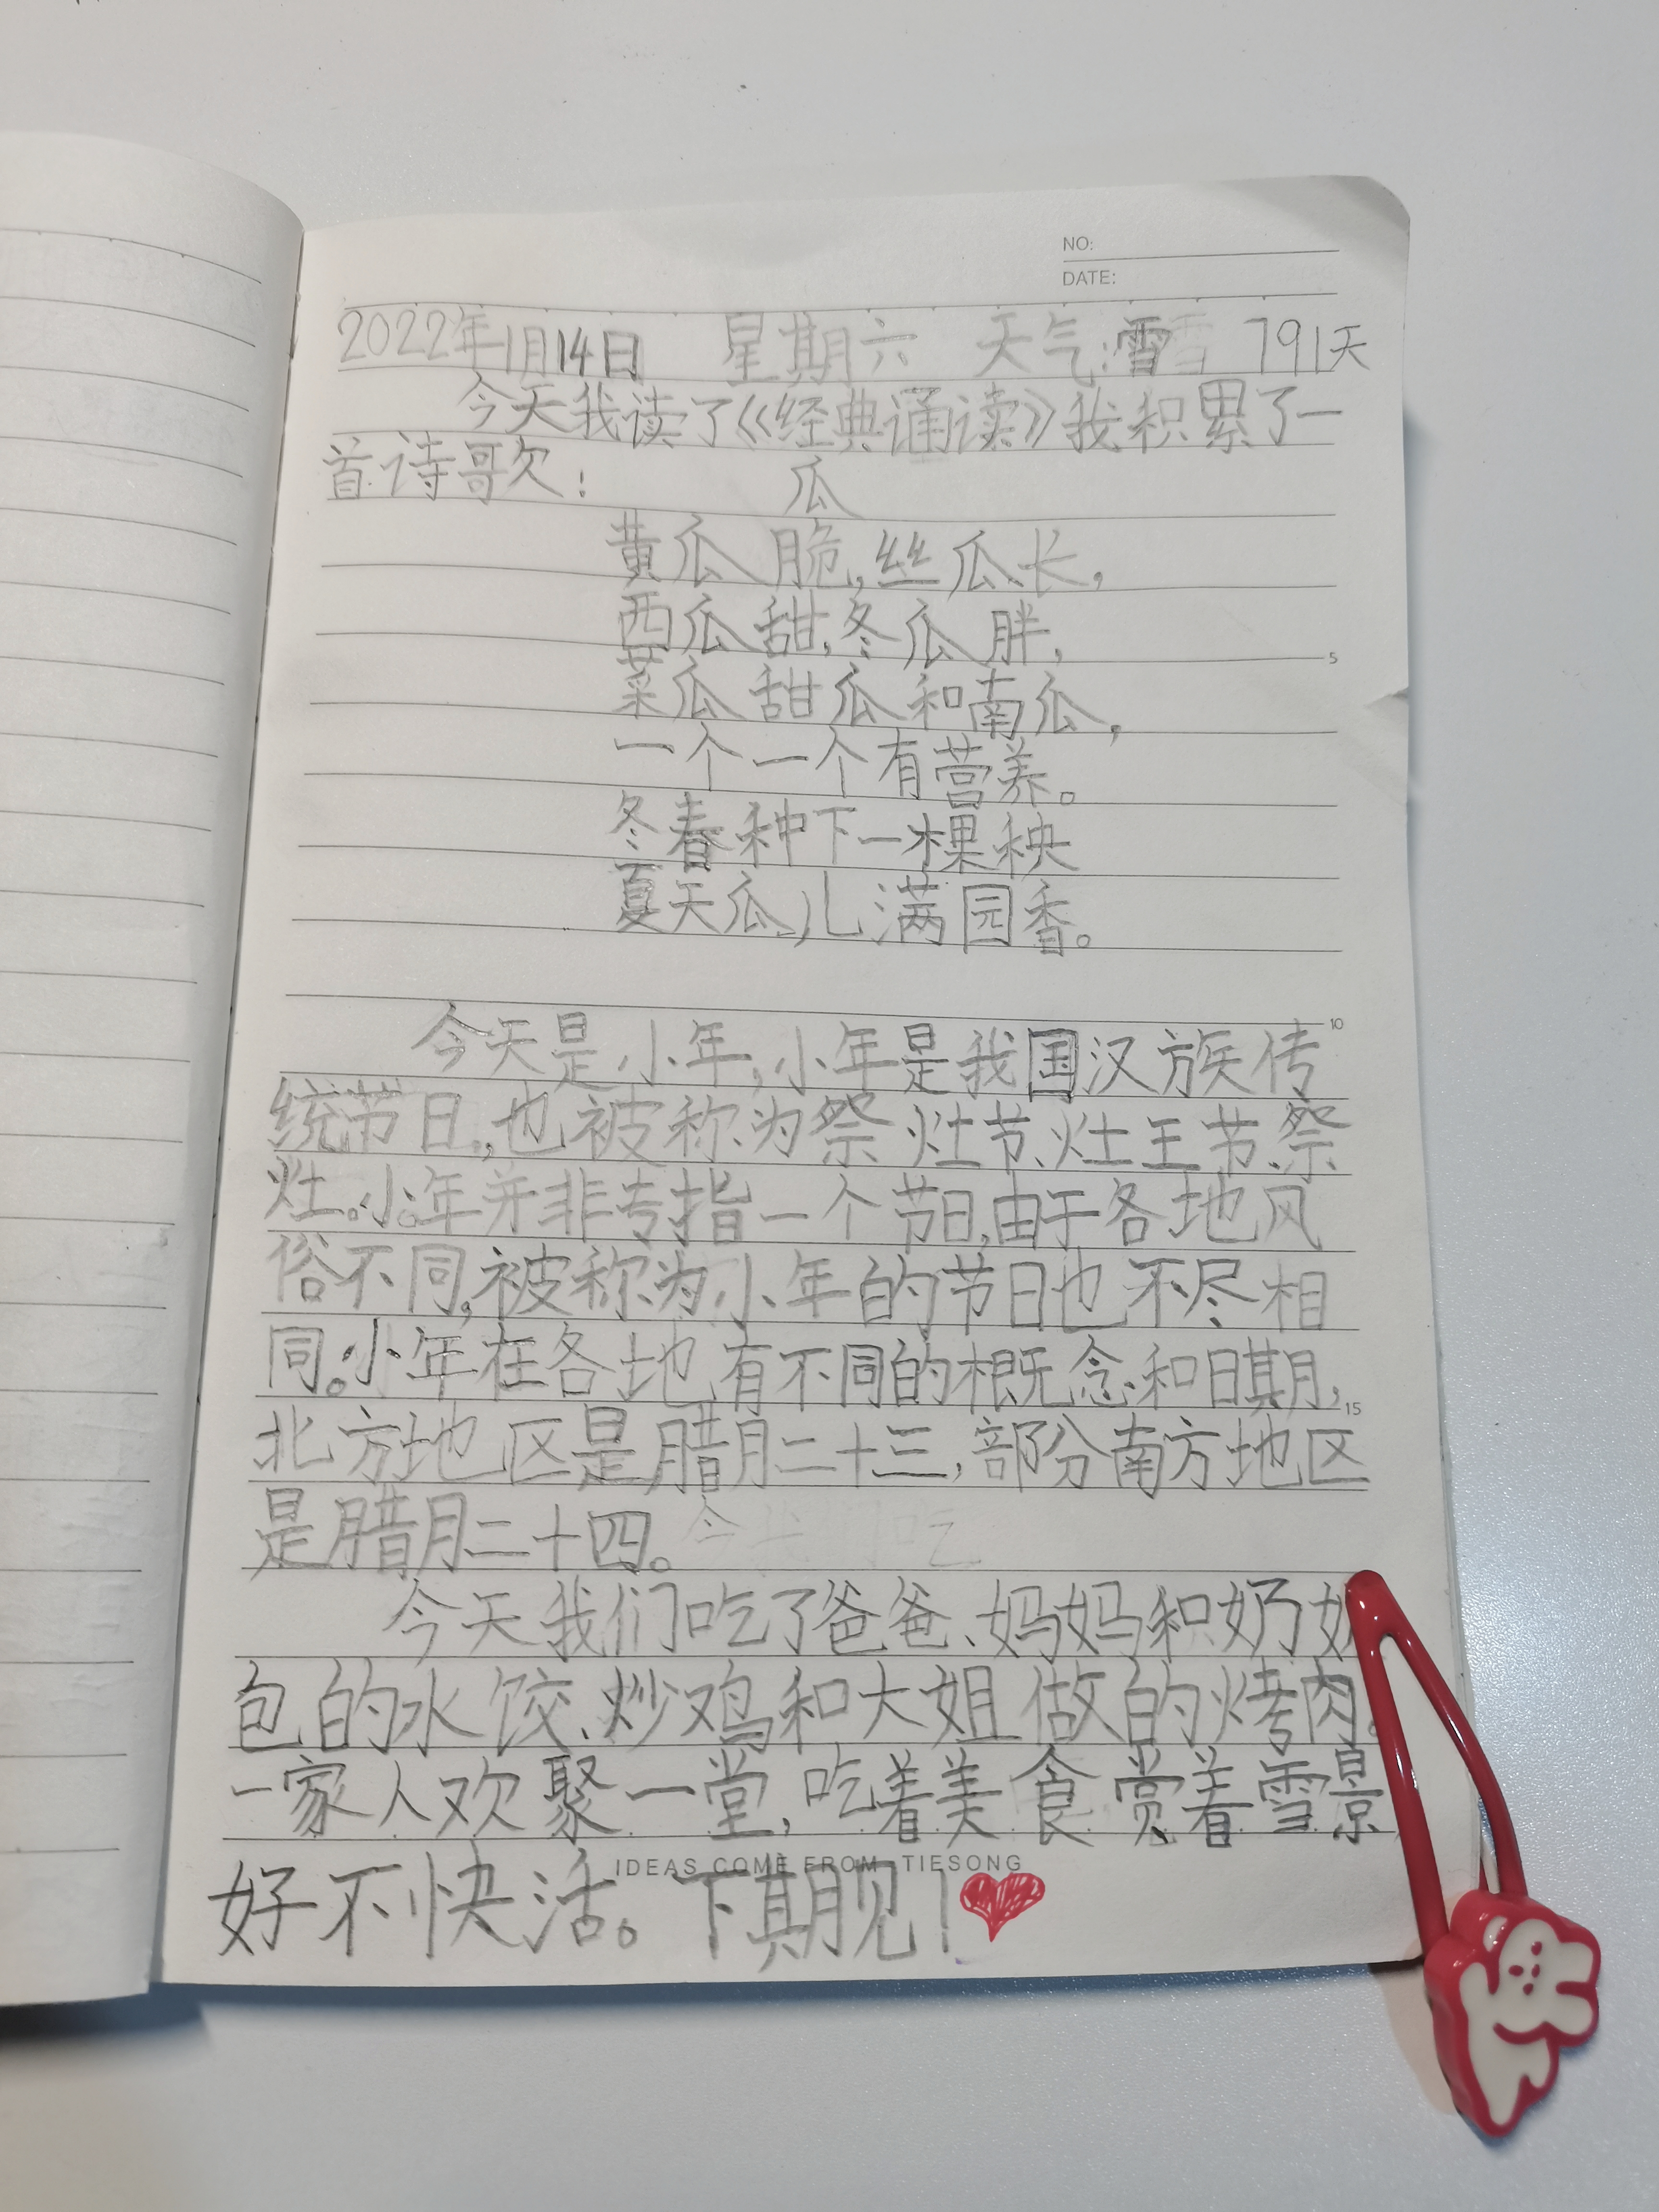 NO:
DATE:
2022年1月14日 星期六 天气:雪 791天
今天我读了《经典诵读》我积累了一
首诗歌欠:
瓜
黄瓜脆,丝瓜长,
西瓜甜,冬瓜胖,
5
菜瓜甜瓜和南瓜,
一个一个有营养。
冬春种下一棵秧
夏天瓜儿满园香。
10
今天是小年,小年是我国汉族传
统节日,也被称为祭灶节、灶王节、祭
灶。小年并非专指一个节日,由于各地风
俗不同,被称为小年的节日也不尽相
同。小年在各地有不同的概念和日期,
15
北方地区是腊月二十三,部分南方地区
是腊月二十四。
今天我们吃了爸爸、妈妈和奶
包的水饺、炒鸡和大姐做的烤肉。
一家人欢聚一堂,吃着美食赏着雪景
好不快活。下期见!
IDEAS COME FROM TIESONG